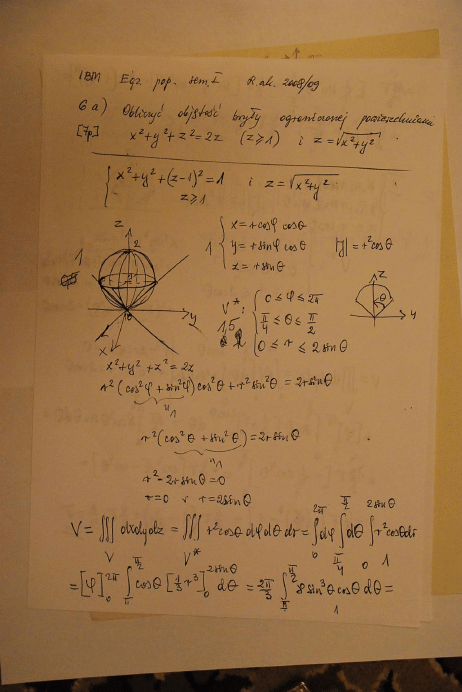 IBM Egz. pop. sem. I R. ak. 2008/09
6 a) Obliczyć objętość bryły ograniczonej powierzchniami
[7p] x²+y²+z²=2z (z≥1) i z=√(x²+y²)
{ x²+y²+(z-1)²=1 i z=√(x²+y²)
z≥1
1 { x=rcosφ cosθ
y=rsinφ cosθ |J|=r²cosθ
z=rsinθ
z 2 1 y x
V*: { 0≤φ≤2π
1,5 π/4≤θ≤π/2
0≤r≤2sinθ
z θ y
x²+y²+z²=2z
r²(cos²φ+sin²φ)cos²θ+r²sin²θ=2rsinθ
"1
r²(cos²θ+sin²θ)=2rsinθ
"1
r²-2rsinθ=0
r=0 v r=2sinθ
V=∭_V dxdydz=∭_V* r²cosθ dφ dθ dr=∫_0^2π dφ ∫_π/4^π/2 dθ ∫_0^2sinθ r²cosθ dr
1
=[φ]_0^2π ∫_π/4^π/2 cosθ [1/3 r³]_0^2sinθ dθ = 2π/3 ∫_π/4^π/2 8sin³θ cosθ dθ=
1